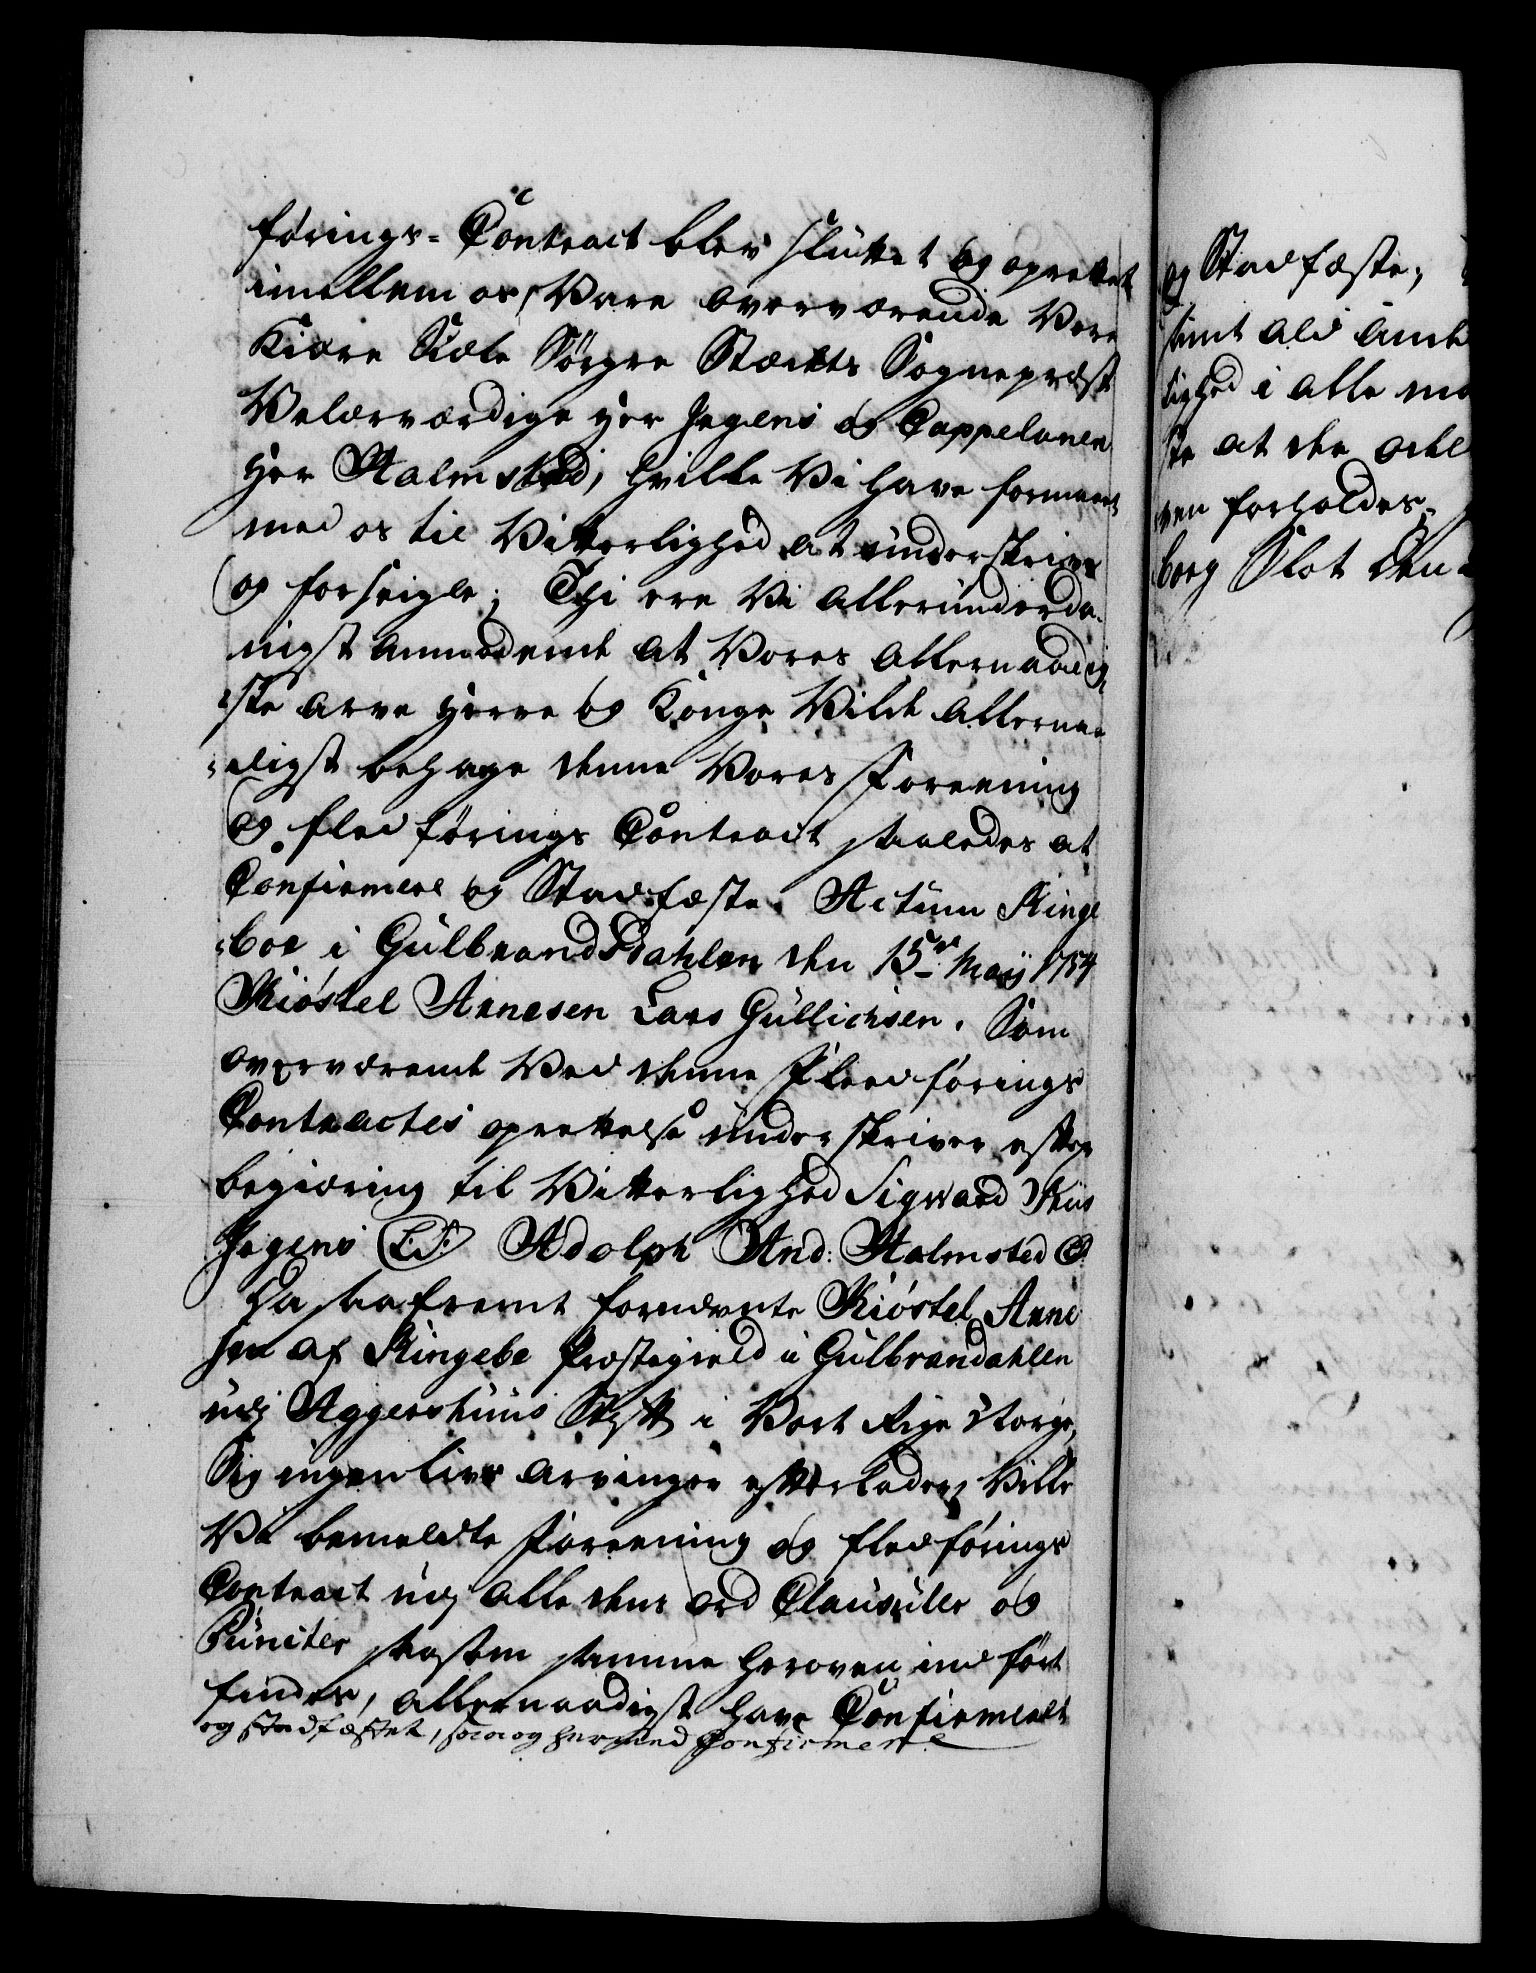 førings-Contract blev sluttet og oprettet
imellem os, Vare overværende Vore
Kiære Siæle Sørgre Stædets Sognepræst
Velærværdige Her Jngens og Cappelanen
Her Halmsted, hvilke Vi have formaaet
med os til Vitterlighed at underskrive
og forseigle; Thi ere Vi allerunderda-
nigst anmodende at Vores allernaadig-
ste Arve Herre og Konge Vilde allernaa-
digst behage denne Vores Foreening
og fledførings Contract saaledes at
Confirmere og Stadfæste. Actum Ringe
boe i Gulbrandsdahlen den 15de Maij 1754
Kiøstel Arnesen Lars Gullichsen. Som
overværende Ved denne Fledførings
Contractes oprettelse underskriver efter
begiæring til Vitterlighed Sigvard Riis
Jngens L.S. Adolph And: Halmsted
Da saafremt fornævnte Kiøstel Arne
sen af Ringebe Præstegield i Gulbrandahlen
udj Aggershuus Stift i Vort Rige Norge,
Sig ingen livs arvinger efterlader, Ville
Vi bemeldte Foreening og fledførings
Contract udj alle dens ord Clausuler og
Puncter saasom samme heroven indført
findes, allernaadigst have Confirmeret
og stadfæstet, som og hermed Confirmere
og Stadfæste;
samt ald
lighed i alle
ste at
ven forholdes.
borg Slot den